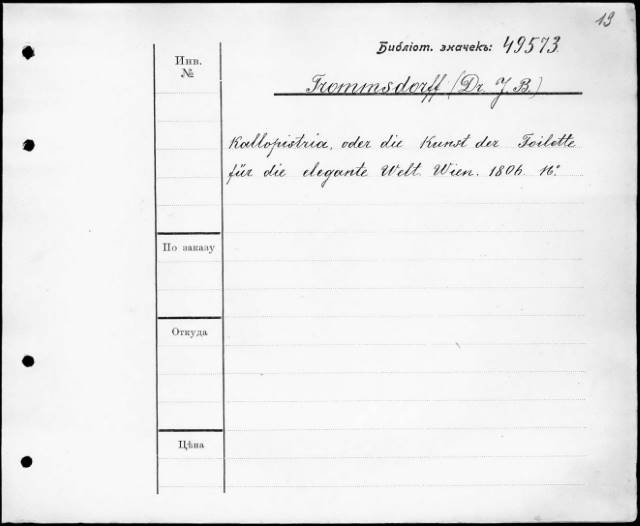 19
Библіот. значекъ: 49573.
Инв.
№
Trommsdorff (Dr. J. B.)
Kallopistria, oder die Kunst der Toilette
für die elegante Welt. Wien. 1806. 16°
По заказу
Откуда
Цѣна